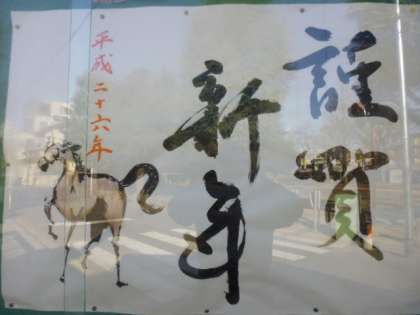 謹賀
新年
平成二十六年